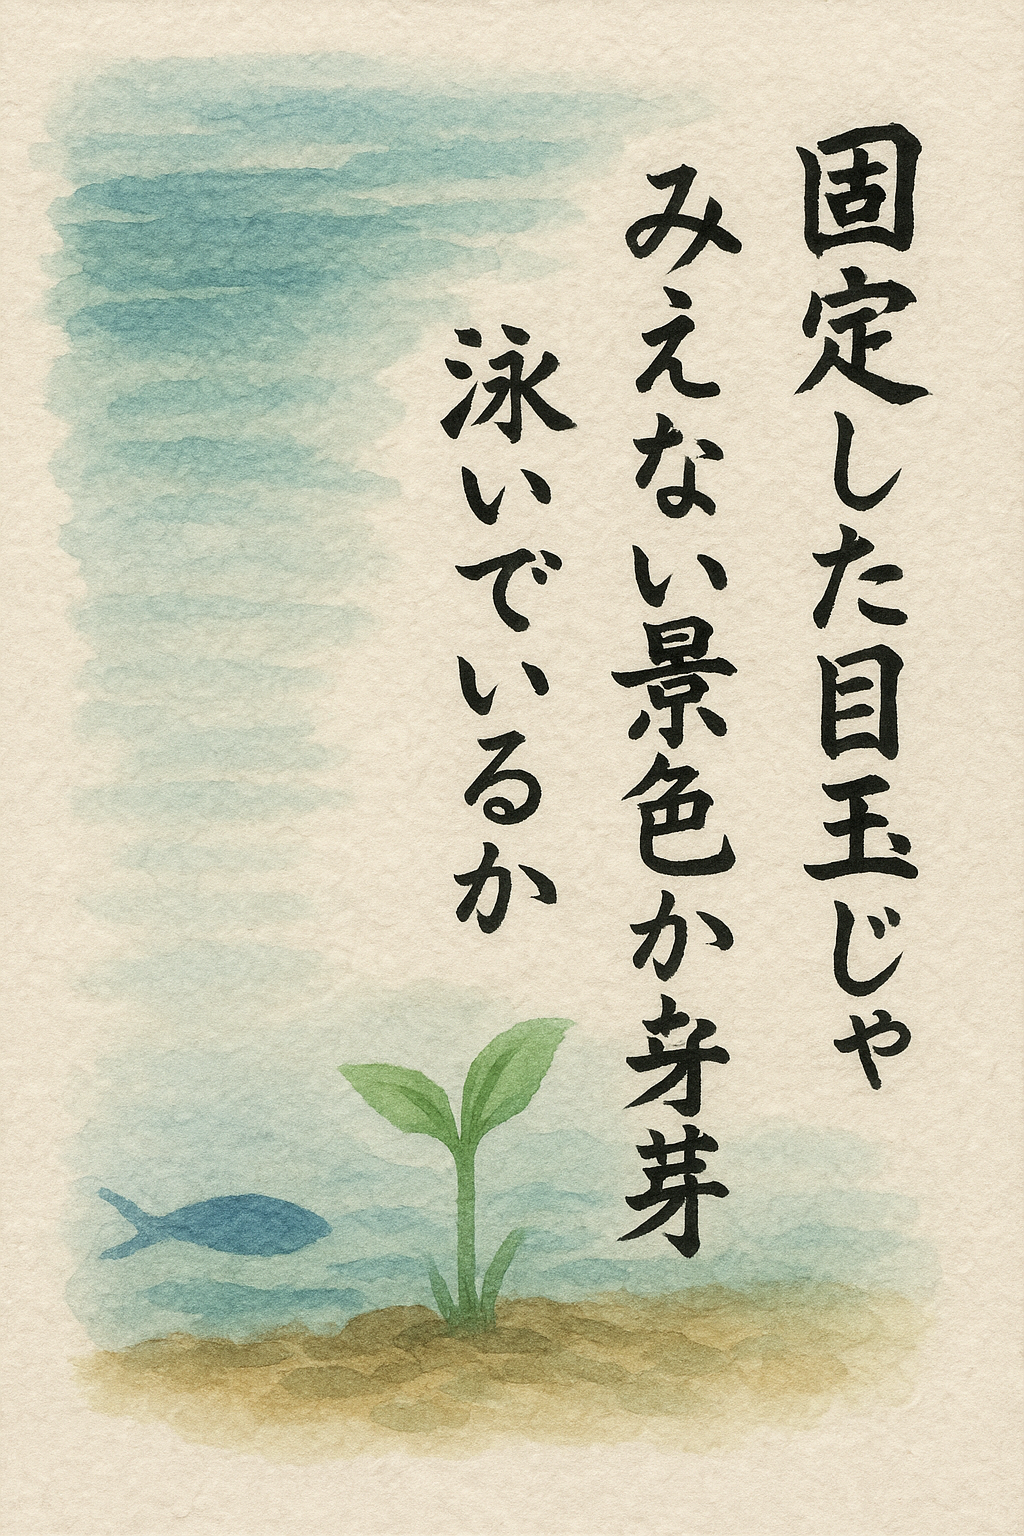 固定した目玉じゃ
みえない景色か芽芽
泳いでいるか